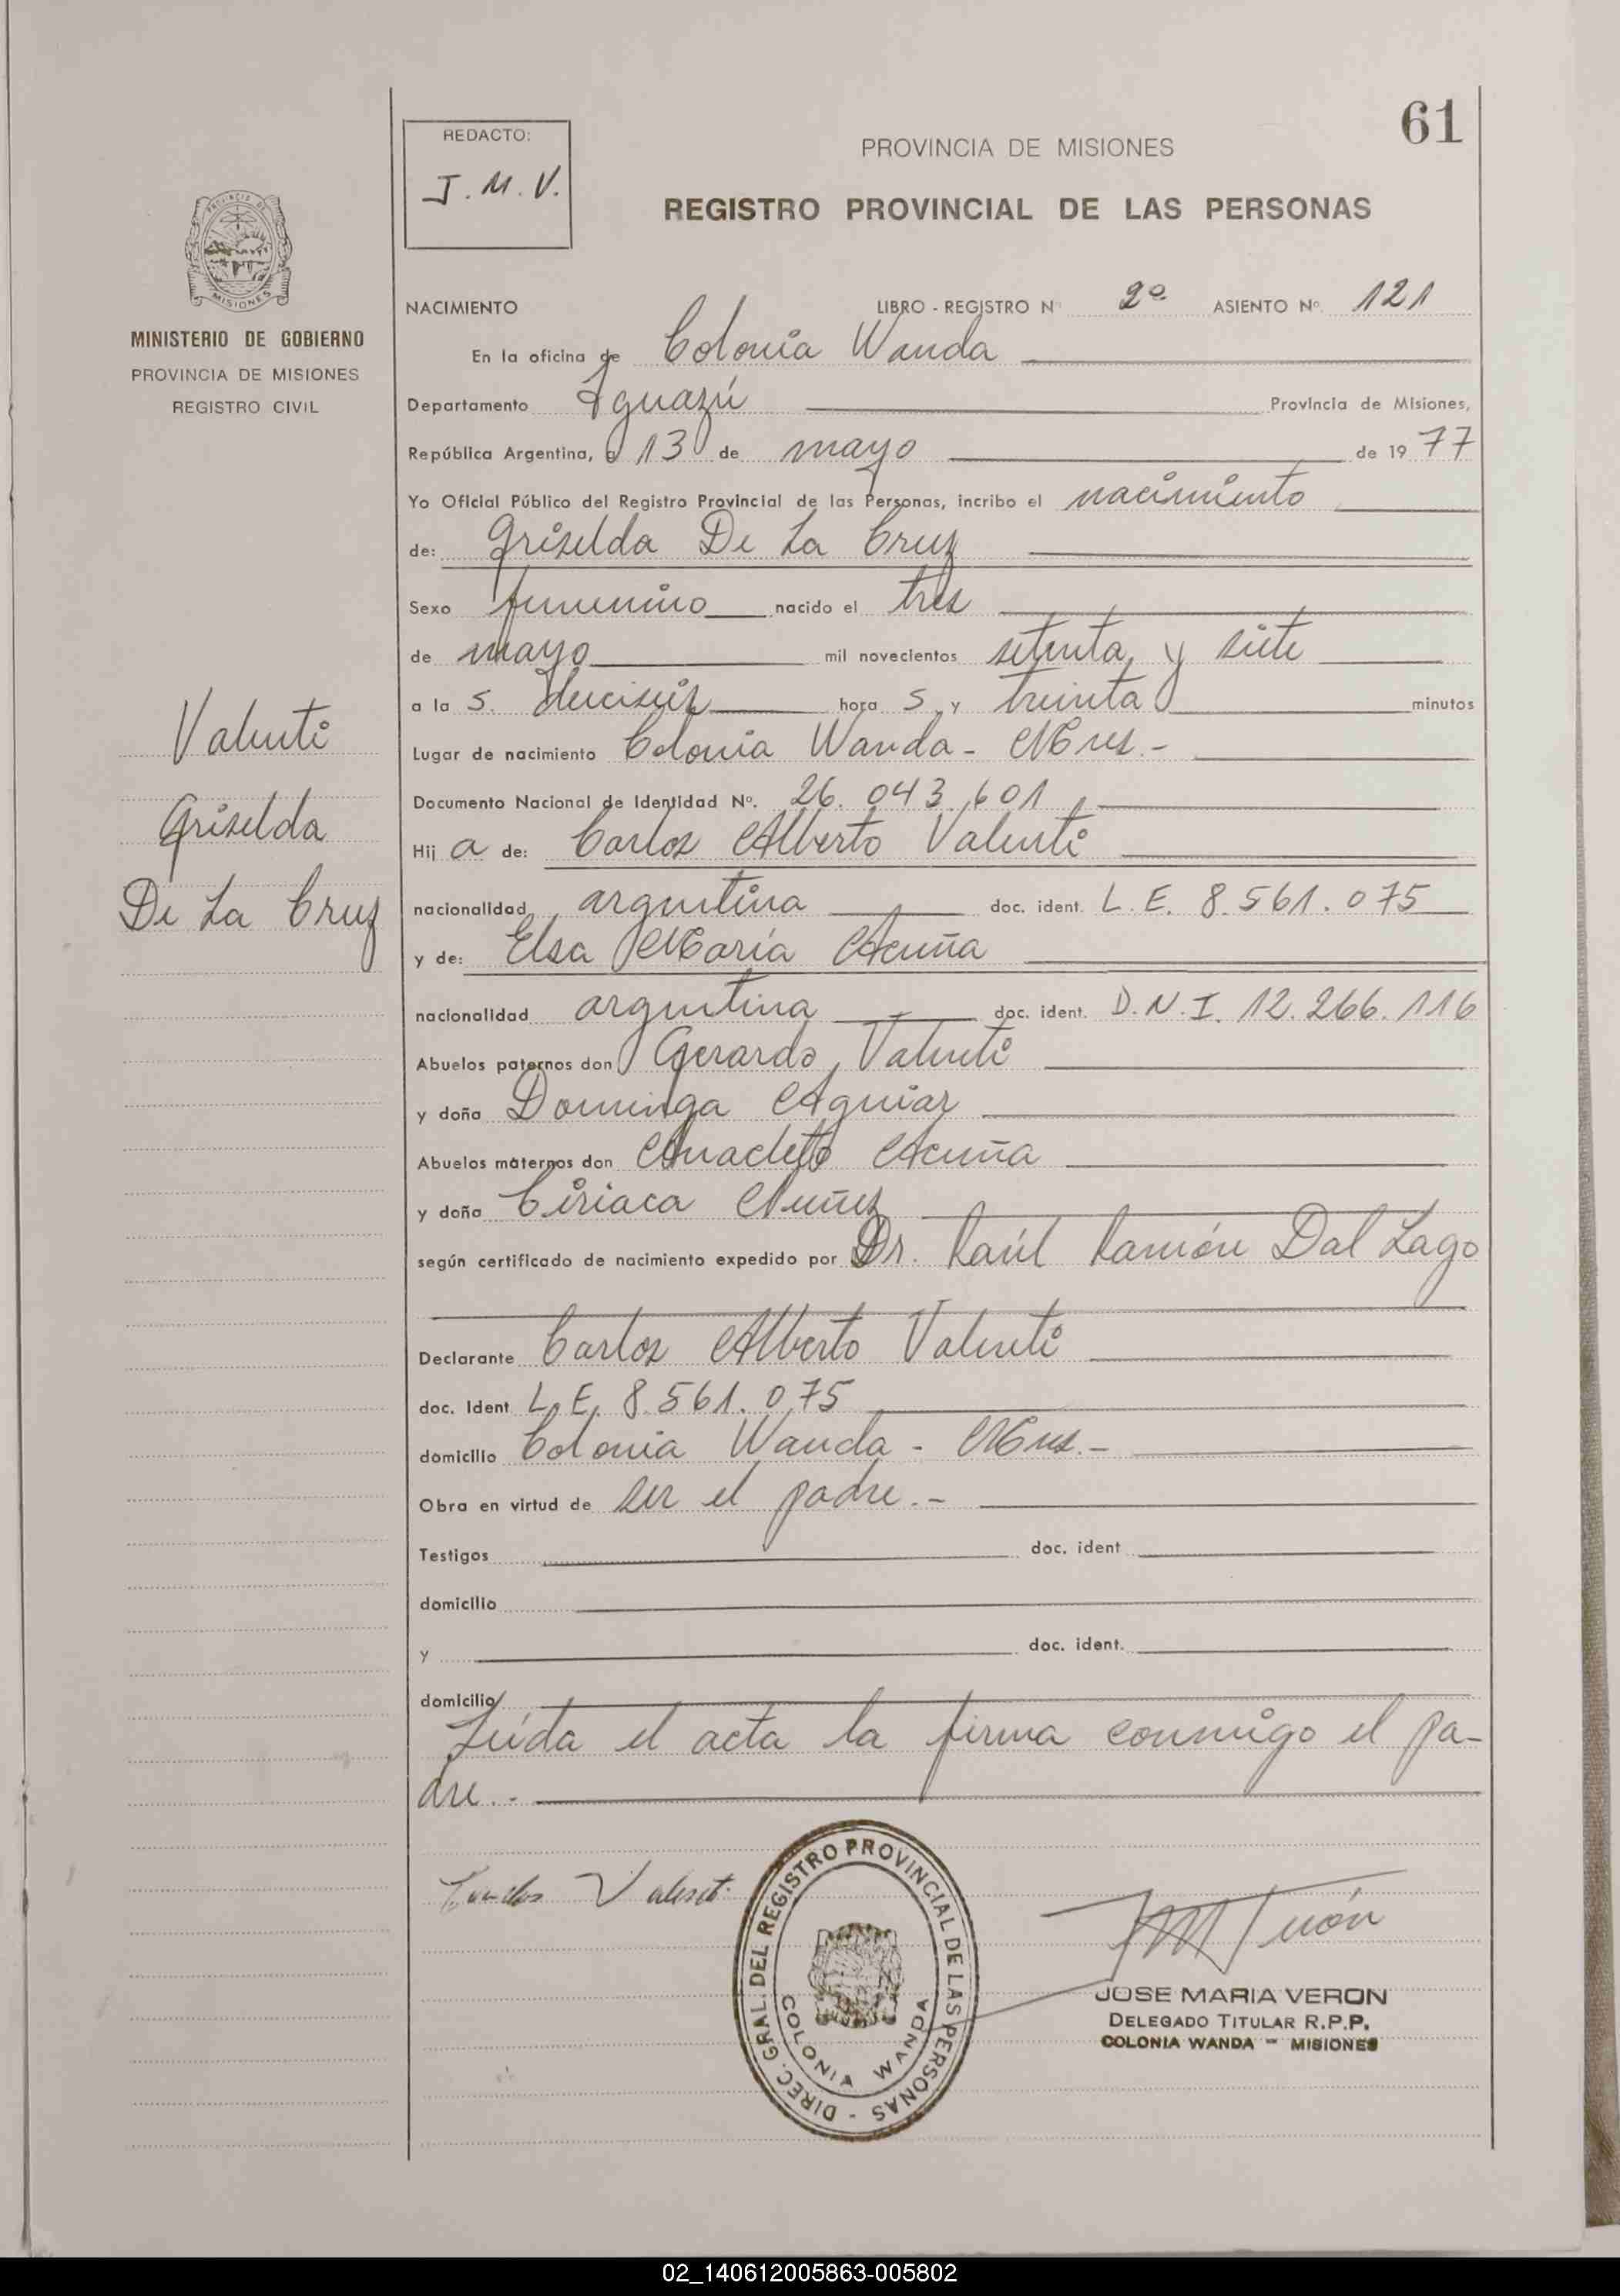 61
REDACTO:
J. M. V.
PROVINCIA DE MISIONES
REGISTRO PROVINCIAL DE LAS PERSONAS
MISIONES
MINISTERIO DE GOBIERNO
PROVINCIA DE MISIONES
REGISTRO CIVIL
NACIMIENTO LIBRO - REGISTRO Nº 2º ASIENTO Nº. 121
En la oficina de Colonia Wanda
Departamento Iguazú Provincia de Misiones,
República Argentina, a 13 de mayo de 19 77
Yo Oficial Público del Registro Provincial de las Personas, incribo el nacimiento
de: Griselda De La Cruz
Sexo femenino nacido el tres
de mayo mil novecientos setenta y siete
a la s. dieciseis hora s y treinta minutos
Valenti
Lugar de nacimiento Colonia Wanda - Mnes.-
Documento Nacional de Identidad Nº. 26.043.601
Griselda
Hij a de: Carlos Alberto Valenti
De La Cruz
nacionalidad argentina doc. ident. L. E. 8.561.075
y de: Elsa María Acuña
nacionalidad argentina doc. ident. D. N. I. 12.266.116
Abuelos paternos don Gerardo Valenti
y doña Dominga Aguiar
Abuelos maternos don Anacleto Acuña
y doña Ciriaca Nuñez
según certificado de nacimiento expedido por Dr. Raúl Ramón Dal Lago
Declarante Carlos Alberto Valenti
doc. Ident L. E. 8.561.075
domicilio Colonia Wanda - Mnes.-
Obra en virtud de ser el padre.-
Testigos doc. ident
domicilio
y doc. ident.
domicilio
Leída el acta la firma conmigo el pa-
dre.-
DIREC. GRAL. DEL REGISTRO PROVINCIAL DE LAS PERSONAS -
COLONIA WANDA
JOSE MARIA VERON
DELEGADO TITULAR R.P.P.
COLONIA WANDA - MISIONES
02_140612005863-005802